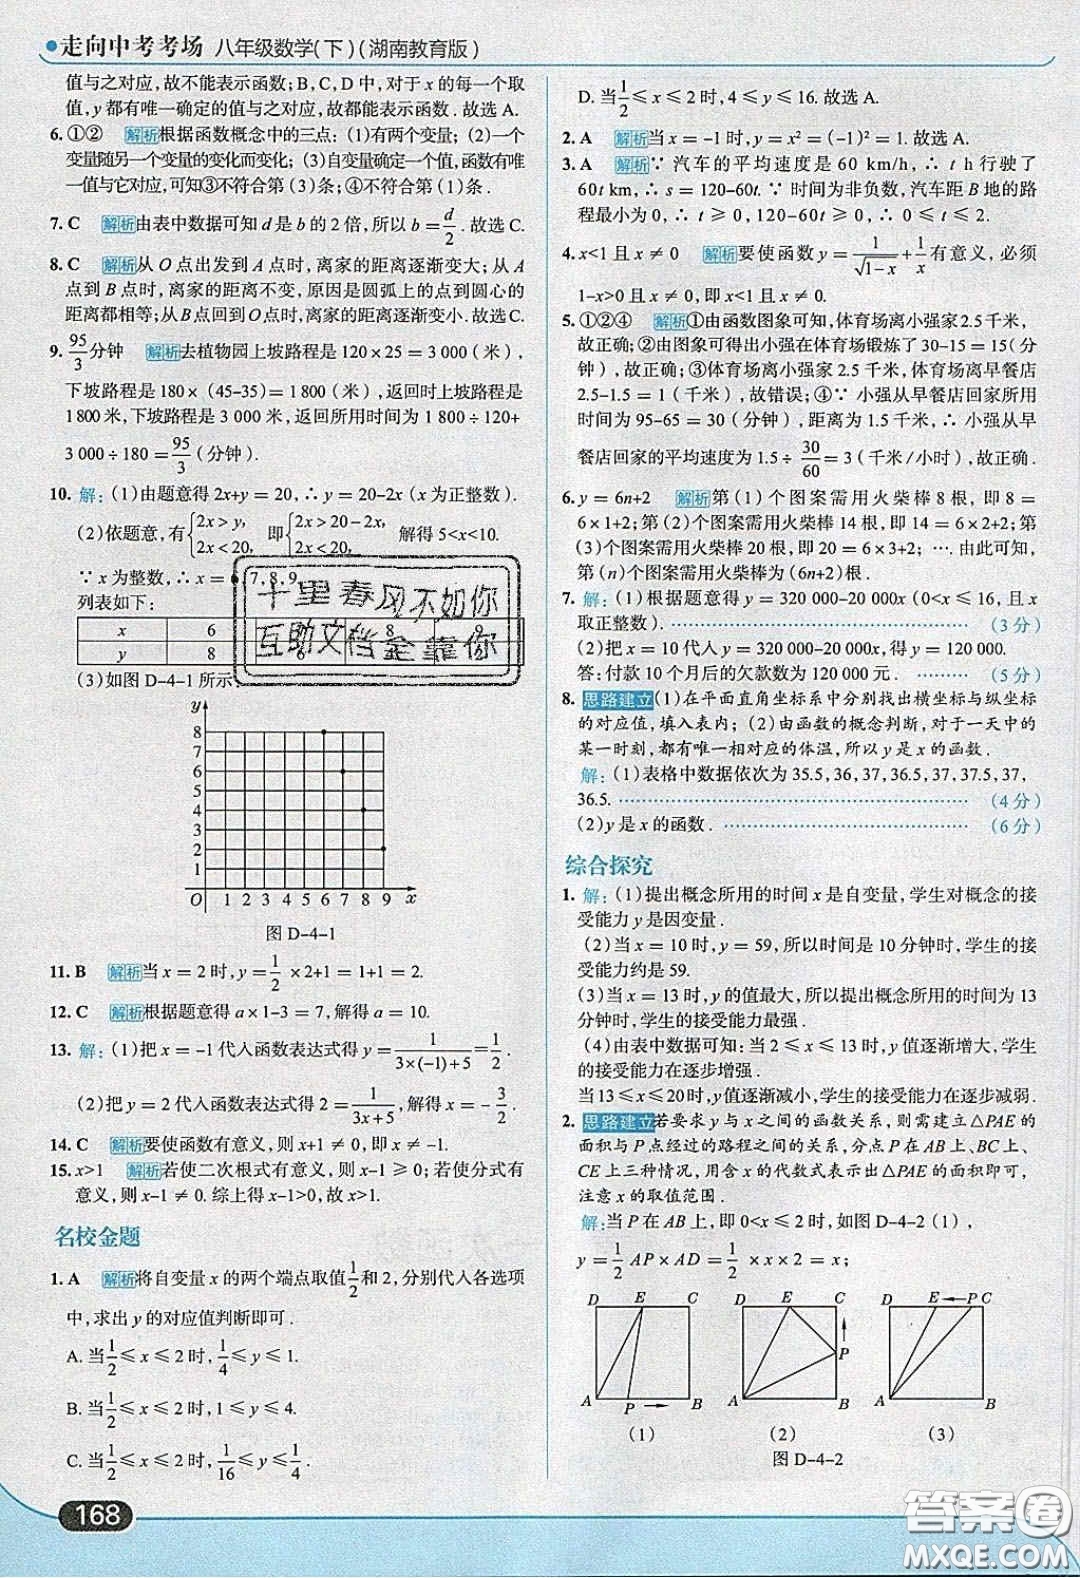 走向中考考场 八年级数学(下)(湖南教育版)
值与之对应,故不能表示函数;B、C、D中,对于x的每一个取
值,y都有唯一确定的值与之对应,故都能表示函数.故选A.
6. ①② 解析 根据函数概念中的三点:(1)有两个变量;(2)一个
变量随另一个变量的变化而变化;(3)自变量确定一个值,函数有唯
一值与它对应,可知③不符合第(3)条;④不符合第(1)条.
7. C 解析 由表中数据可知d是b的2倍,所以b=d/2.故选C.
8. C 解析 从O点出发到A点时,离家的距离逐渐变大;从A
点到B点时,离家的距离不变,原因是圆弧上的点到圆心的
距离都相等;从B点回到O点时,离家的距离逐渐变小.故选C.
9. 95/3分钟 解析 去植物园上坡路程是120×25=3 000(米),
下坡路程是180×(45-35)=1 800(米),返回时上坡路程是
1 800米,下坡路程是3 000米,返回所用时间为1 800÷120+
3 000÷180=95/3(分钟).
10. 解:(1)由题意得2x+y=20,∴y=20-2x(x为正整数).
(2)依题意,有{2x>y, 2x<20, 即{2x>20-2x, 2x<20, 解得5<x<10.
∵x为整数,∴x=6,7,8,9.
列表如下:
x 6 8 9
y 8 6 2
(3)如图D-4-1所示.
y
8
7
6
5
4
3
2
1
O 1 2 3 4 5 6 7 8 9 x
图D-4-1
11. B 解析 当x=2时,y=1/2×2+1=1+1=2.
12. C 解析 根据题意得a×1-3=7,解得a=10.
13. 解:(1)把x=-1代入函数表达式得y=1/(3×(-1)+5)=1/2.
(2)把y=2代入函数表达式得2=1/(3x+5),解得x=-3/2.
14. C 解析 要使函数有意义,则x+1≠0,即x≠-1.
15. x>1 解析 若使二次根式有意义,则x-1≥0;若使分式有
意义,则x-1≠0.综上得x-1>0,故x>1.
名校金题
1. A 解析 将自变量x的两个端点取值1/2和2,分别代入各选项
中,求出y的对应值判断即可.
A. 当1/2≤x≤2时,1/4≤y≤1.
B. 当1/2≤x≤2时,1≤y≤4.
C. 当1/2≤x≤2时,1/16≤y≤1/4.
168
D. 当1/2≤x≤2时,4≤y≤16.故选A.
2. A 解析 当x=-1时,y=x²=(-1)²=1.故选A.
3. A 解析 ∵汽车的平均速度是60 km/h,∴t h行驶了
60t km,∴s=120-60t.∵时间为非负数,汽车距B地的路
程最小为0,∴t≥0,120-60t≥0,∴0≤t≤2.
4. x<1且x≠0 解析 要使函数y=1/√(1-x)+1/x有意义,必须
1-x>0且x≠0,即x<1且x≠0.
5. ①②④ 解析 ①由函数图象可知,体育场离小强家2.5千米,
故正确;②由图象可得出小强在体育场锻炼了30-15=15(分
钟),故正确;③体育场离小强家2.5千米,体育场离早餐店
2.5-1.5=1(千米),故错误;④∵小强从早餐店回家所用
时间为95-65=30(分钟),距离为1.5千米,∴小强从早
餐店回家的平均速度为1.5÷30/60=3(千米/小时),故正确.
6. y=6n+2 解析 第(1)个图案需用火柴棒8根,即8=
6×1+2;第(2)个图案需用火柴棒14根,即14=6×2+2;第
(3)个图案需用火柴棒20根,即20=6×3+2;….由此可知,
第(n)个图案需用火柴棒为(6n+2)根.
7. 解:(1)根据题意得y=320 000-20 000x(0<x≤16,且x
取正整数).……(3分)
(2)把x=10代入y=320 000-20 000x,得y=120 000.
答:付款10个月后的欠款数为120 000元.……(5分)
8. 思路建立 (1)在平面直角坐标系中分别找出横坐标与纵坐标
的对应值,填入表内;(2)由函数的概念判断,对于一天中的
某一时刻,都有唯一相对应的体温,所以y是x的函数.
解:(1)表格中数据依次为35.5,36,37,36.5,37,37.5,37,
36.5.……(4分)
(2)y是x的函数.……(6分)
综合探究
1. 解:(1)提出概念所用的时间x是自变量,学生对概念的接
受能力y是因变量.
(2)当x=10时,y=59,所以时间是10分钟时,学生的接
受能力约是59.
(3)当x=13时,y的值最大,所以提出概念所用的时间为13
分钟时,学生的接受能力最强.
(4)由表中数据可知:当2≤x≤13时,y值逐渐增大,学生
的接受能力在逐步增强.
当13≤x≤20时,y值逐渐减小,学生的接受能力在逐步减弱.
2. 思路建立 若要求y与x之间的函数关系,则需建立△PAE的
面积与P点经过的路程之间的关系,分点P在AB上、BC上、
CE上三种情况,用含x的代数式表示出△PAE的面积即可,
注意x的取值范围.
解:当P在AB上,即0<x≤2时,如图D-4-2(1),
y=1/2 AP×AD=1/2×x×2=x;
D E C A P B (1)
D E C P A B (2)
D E P C A B (3)
图D-4-2
十里春风不如你
互助文档全靠你
答案圈
MXQE.COM